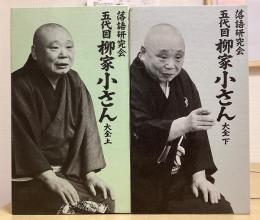 落語研究会
五代目 柳家小さん 大全 上
落語研究会
五代目 柳家小さん 大全 下